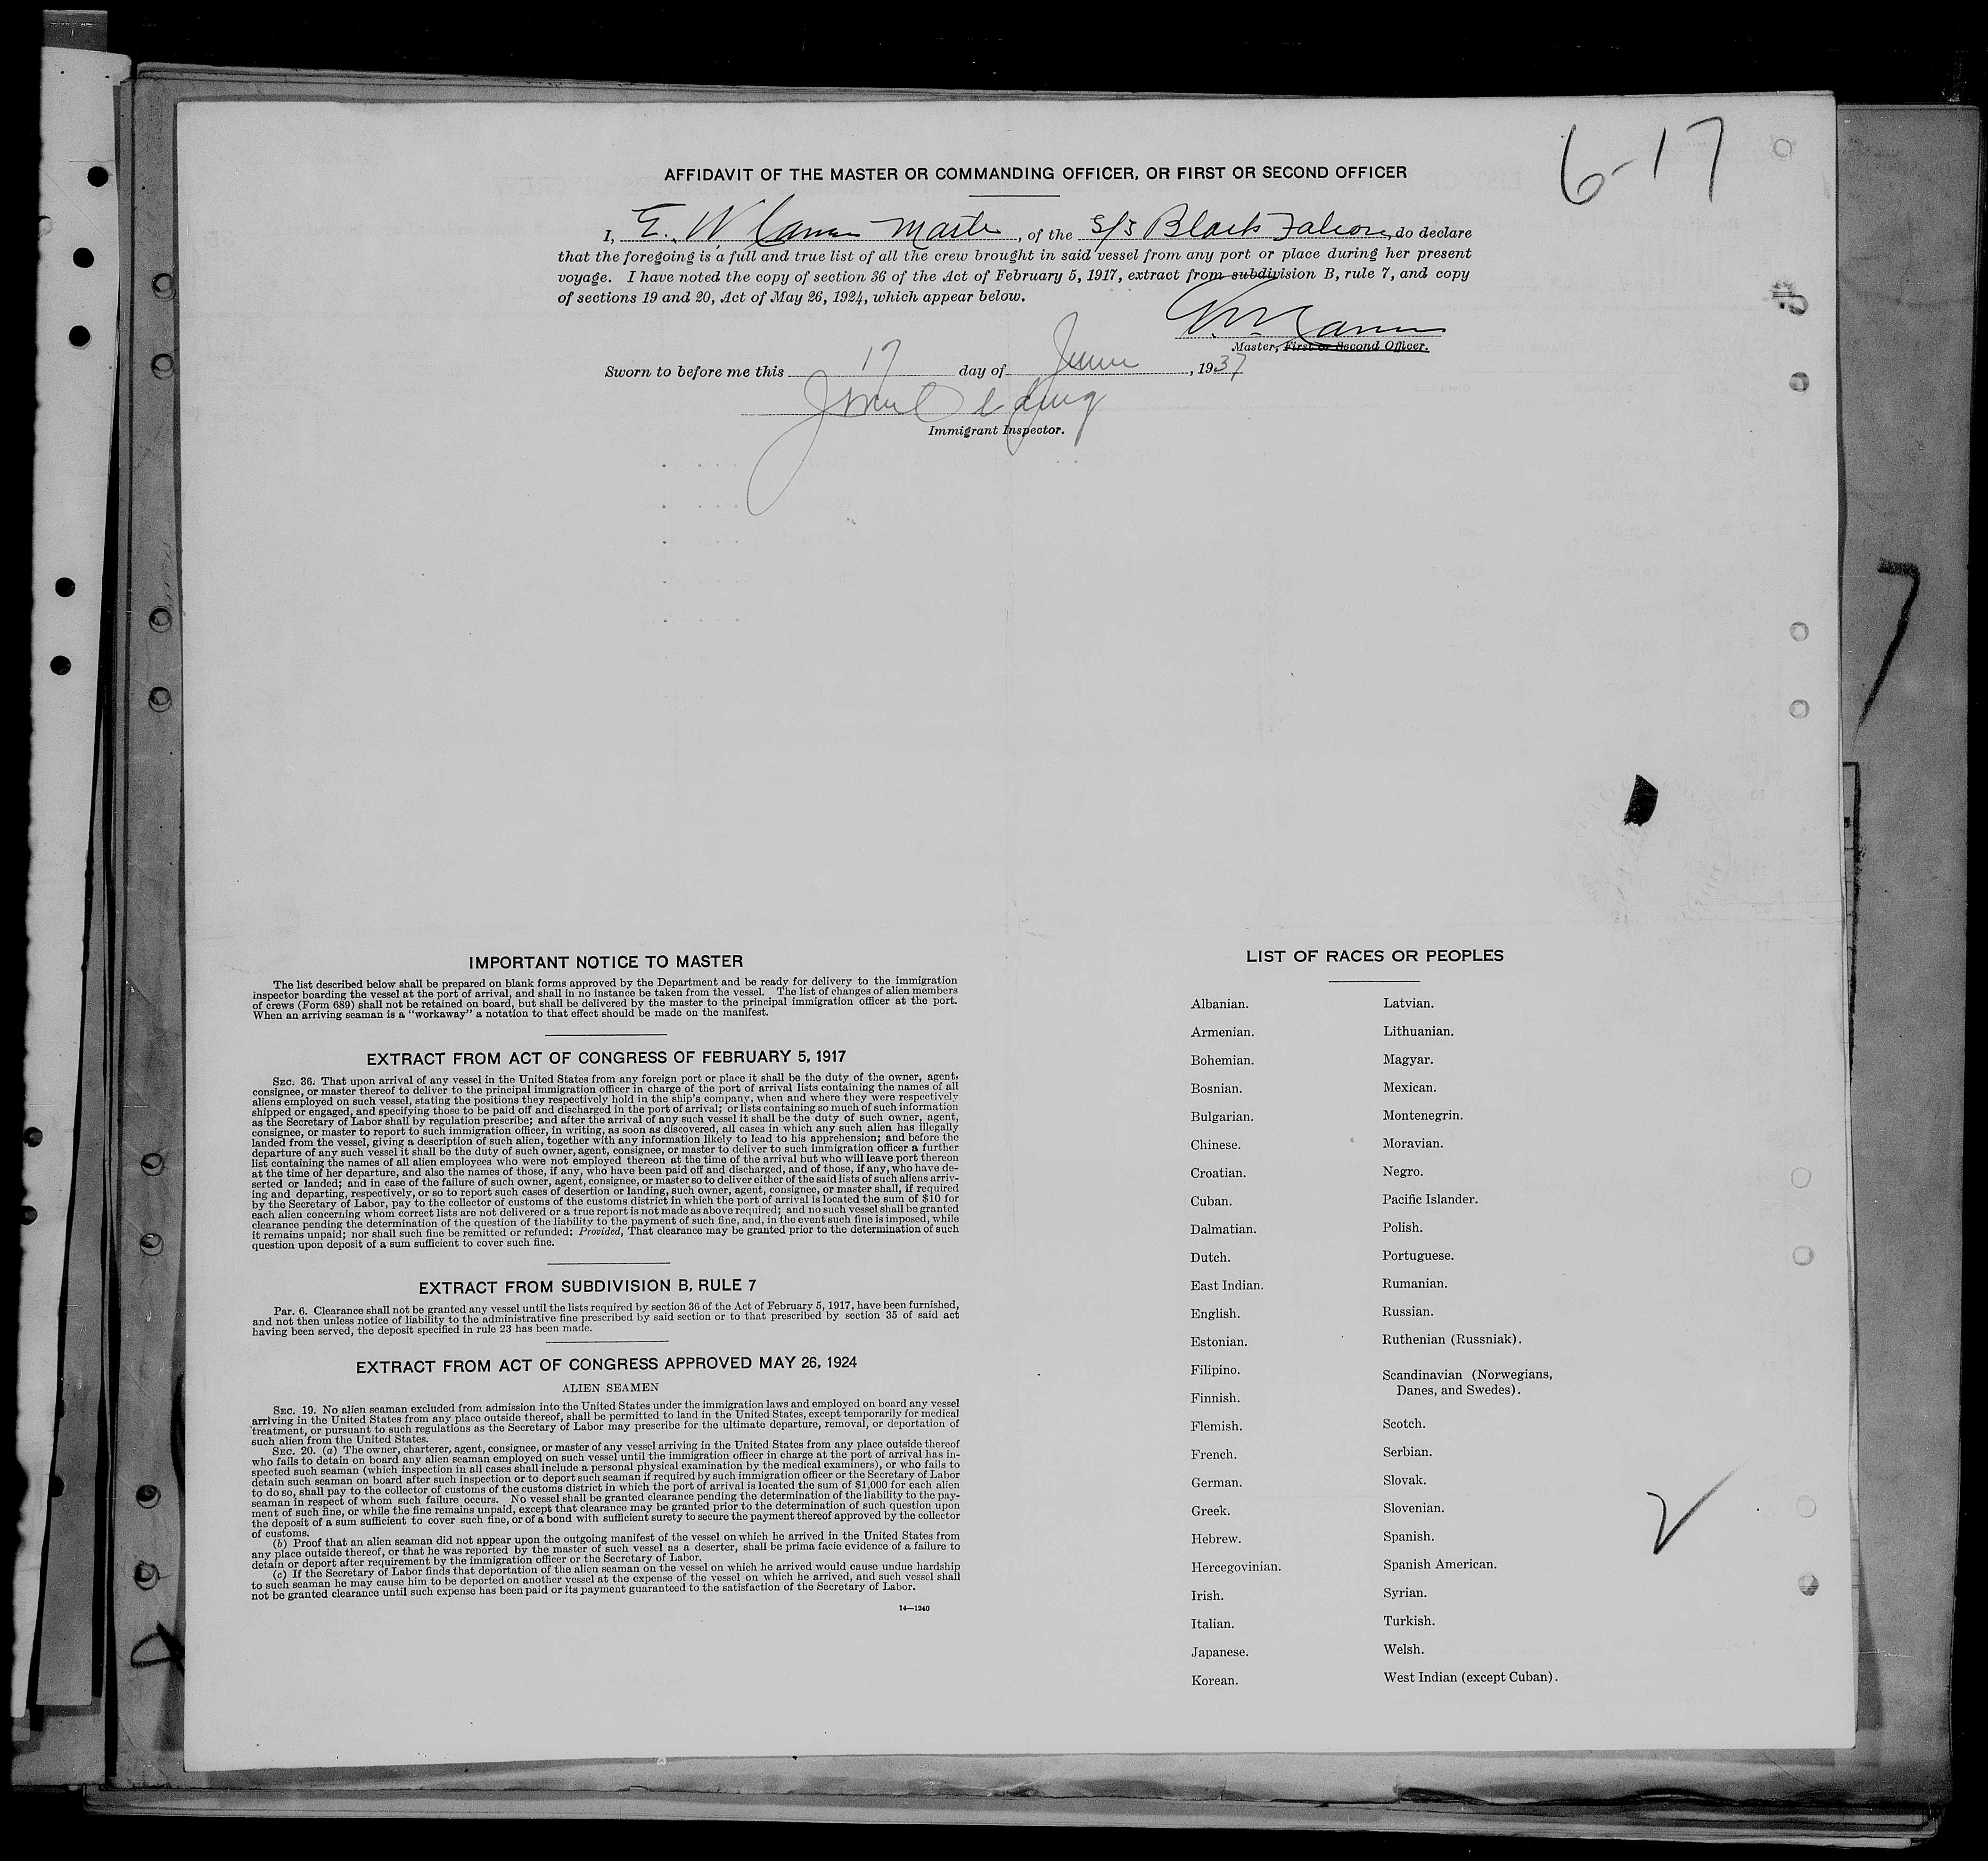 6-17
AFFIDAVIT OF THE MASTER OR COMMANDING OFFICER, OR FIRST OR SECOND OFFICER
I, E. W. Master, of the S/S Black Falcon, do declare
that the foregoing is a full and true list of all the crew brought in said vessel from any port or place during her present
voyage. I have noted the copy of section 36 of the Act of February 5, 1917, extract from subdivision B, rule 7, and copy
of sections 19 and 20, Act of May 26, 1924, which appear below.
Master, First or Second Officer.
Sworn to before me this 17 day of June, 1937
Immigrant Inspector.
7
IMPORTANT NOTICE TO MASTER
The list described below shall be prepared on blank forms approved by the Department and be ready for delivery to the immigration
inspector boarding the vessel at the port of arrival, and shall in no instance be taken from the vessel. The list of changes of alien members
of crews (Form 689) shall not be retained on board, but shall be delivered by the master to the principal immigration officer at the port.
When an arriving seaman is a "workaway" a notation to that effect should be made on the manifest.
EXTRACT FROM ACT OF CONGRESS OF FEBRUARY 5, 1917
SEC. 36. That upon arrival of any vessel in the United States from any foreign port or place it shall be the duty of the owner, agent,
consignee, or master thereof to deliver to the principal immigration officer in charge of the port of arrival lists containing the names of all
aliens employed on such vessel, stating the positions they respectively hold in the ship's company, when and where they were respectively
shipped or engaged, and specifying those to be paid off and discharged in the port of arrival; or lists containing so much of such information
as the Secretary of Labor shall by regulation prescribe; and after the arrival of any such vessel it shall be the duty of such owner, agent,
consignee, or master to report to such immigration officer, in writing, as soon as discovered, all cases in which any such alien has illegally
landed from the vessel, giving a description of such alien, together with any information likely to lead to his apprehension; and before the
departure of any such vessel it shall be the duty of such owner, agent, consignee, or master to deliver to such immigration officer a further
list containing the names of all alien employees who were not employed thereon at the time of the arrival but who will leave port thereon
at the time of her departure, and also the names of those, if any, who have been paid off and discharged, and of those, if any, who have de-
serted or landed; and in case of the failure of such owner, agent, consignee, or master so to deliver either of the said lists of such aliens arriv-
ing and departing, respectively, or so to report such cases of desertion or landing, such owner, agent, consignee, or master shall, if required
by the Secretary of Labor, pay to the collector of customs of the customs district in which the port of arrival is located the sum of $10 for
each alien concerning whom correct lists are not delivered or a true report is not made as above required; and no such vessel shall be granted
clearance pending the determination of the question of the liability to the payment of such fine, and, in the event such fine is imposed, while
it remains unpaid; nor shall such fine be remitted or refunded: Provided, That clearance may be granted prior to the determination of such
question upon deposit of a sum sufficient to cover such fine.
EXTRACT FROM SUBDIVISION B, RULE 7
Par. 6. Clearance shall not be granted any vessel until the lists required by section 36 of the Act of February 5, 1917, have been furnished,
and not then unless notice of liability to the administrative fine prescribed by said section or to that prescribed by section 35 of said act
having been served, the deposit specified in rule 23 has been made.
EXTRACT FROM ACT OF CONGRESS APPROVED MAY 26, 1924
ALIEN SEAMEN
SEC. 19. No alien seaman excluded from admission into the United States under the immigration laws and employed on board any vessel
arriving in the United States from any place outside thereof, shall be permitted to land in the United States, except temporarily for medical
treatment, or pursuant to such regulations as the Secretary of Labor may prescribe for the ultimate departure, removal, or deportation of
such alien from the United States.
SEC. 20. (a) The owner, charterer, agent, consignee, or master of any vessel arriving in the United States from any place outside thereof
who fails to detain on board any alien seaman employed on such vessel until the immigration officer in charge at the port of arrival has in-
spected such seaman (which inspection in all cases shall include a personal physical examination by the medical examiners), or who fails to
detain such seaman on board after such inspection or to deport such seaman if required by such immigration officer or the Secretary of Labor
to do so, shall pay to the collector of customs of the customs district in which the port of arrival is located the sum of $1,000 for each alien
seaman in respect of whom such failure occurs. No vessel shall be granted clearance pending the determination of the liability to the pay-
ment of such fine, or while the fine remains unpaid, except that clearance may be granted prior to the determination of such question upon
the deposit of a sum sufficient to cover such fine, or of a bond with sufficient surety to secure the payment thereof approved by the collector
of customs.
(b) Proof that an alien seaman did not appear upon the outgoing manifest of the vessel on which he arrived in the United States from
any place outside thereof, or that he was reported by the master of such vessel as a deserter, shall be prima facie evidence of a failure to
detain or deport after requirement by the immigration officer or the Secretary of Labor.
(c) If the Secretary of Labor finds that deportation of the alien seaman on the vessel on which he arrived would cause undue hardship
to such seaman he may cause him to be deported on another vessel at the expense of the vessel on which he arrived, and such vessel shall
not be granted clearance until such expense has been paid or its payment guaranteed to the satisfaction of the Secretary of Labor.
14—1240
LIST OF RACES OR PEOPLES
Albanian.
Armenian.
Bohemian.
Bosnian.
Bulgarian.
Chinese.
Croatian.
Cuban.
Dalmatian.
Dutch.
East Indian.
English.
Estonian.
Filipino.
Finnish.
Flemish.
French.
German.
Greek.
Hebrew.
Hercegovinian.
Irish.
Italian.
Japanese.
Korean.
Latvian.
Lithuanian.
Magyar.
Mexican.
Montenegrin.
Moravian.
Negro.
Pacific Islander.
Polish.
Portuguese.
Rumanian.
Russian.
Ruthenian (Russniak).
Scandinavian (Norwegians,
Danes, and Swedes).
Scotch.
Serbian.
Slovak.
Slovenian.
Spanish.
Spanish American.
Syrian.
Turkish.
Welsh.
West Indian (except Cuban).